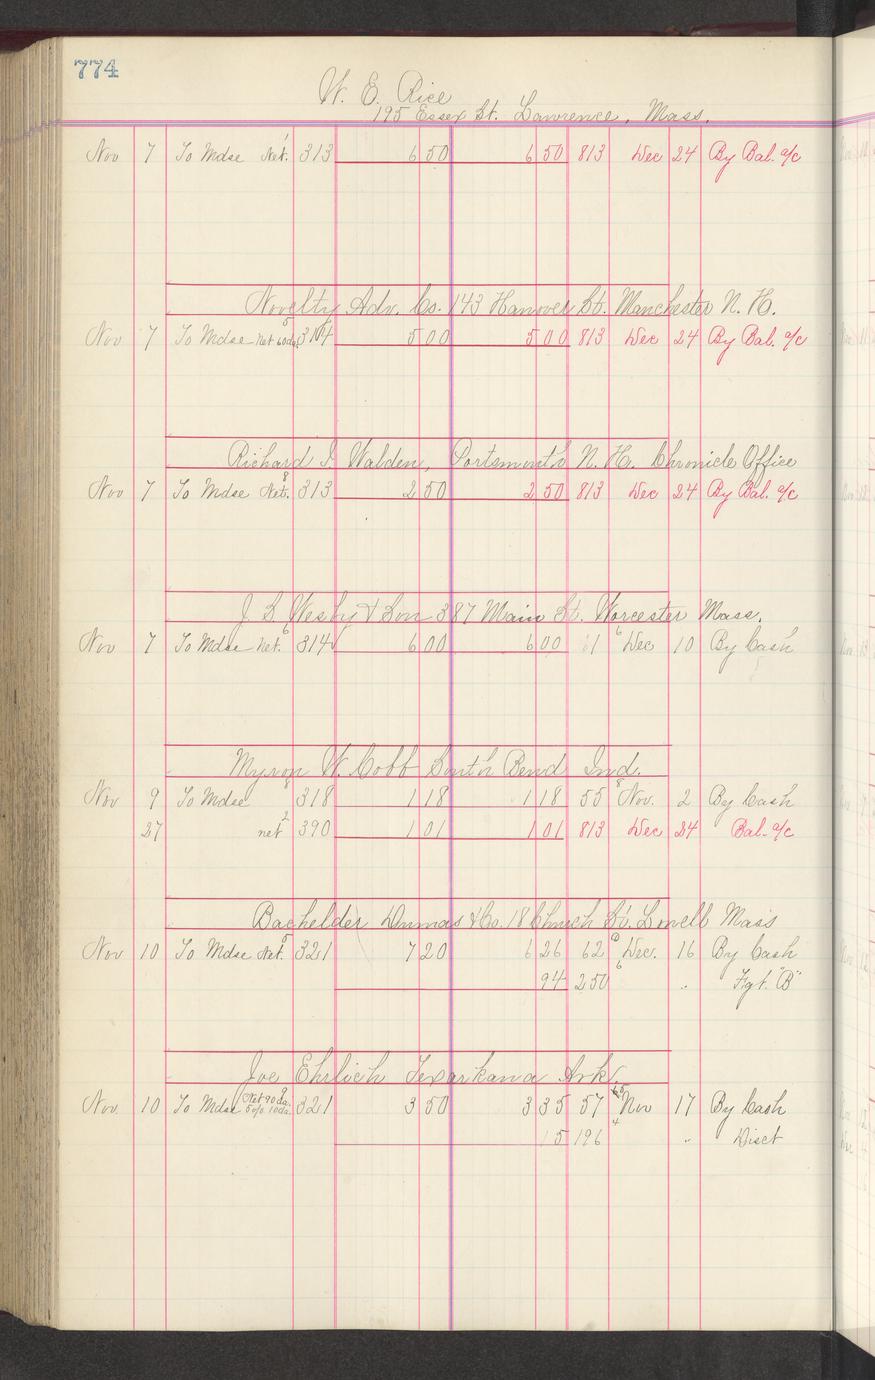 774
W. E. Rice
195 Essex St. Lawrence, Mass.
Nov 7 To Mdse Net. 1 313 6 50 6 50 813 Dec 24 By Bal. a/c
Novelty Adv. Co. 143 Hanover St. Manchester N. H.
Nov 7 To Mdse Net 60ds 5 314 5 00 5 00 813 Dec 24 By Bal. a/c
Richard I. Walden, Portsmouth N. H. Chronicle Office
Nov 7 To Mdse Net. 8 313 2 50 2 50 813 Dec 24 By Bal. a/c
J. S. Wesby & Son 387 Main St. Worcester Mass.
Nov 7 To Mdse Net. 6 314 6 00 6 00 61 6 Dec 10 By Cash
Myron W. Cobb South Bend Ind.
Nov 9 To Mdse 8 318 1 18 1 18 55 8 Nov. 2 By Cash
27 net 2 390 1 01 1 01 813 Dec 24 Bal. a/c
Bachelder Dumas & Co. 18 Church St. Lowell Mass
Nov 10 To Mdse Net. 5 321 7 20 6 26 62 Dec. 16 By Cash
94 250 6 " Fgt. "B"
Joe Ehrlich Texarkana Ark.
Nov. 10 To Mdse Net 90 da. 5 o/o 10 da. 321 3 50 3 35 57 Nov 17 By Cash
15 196 4 " Disct